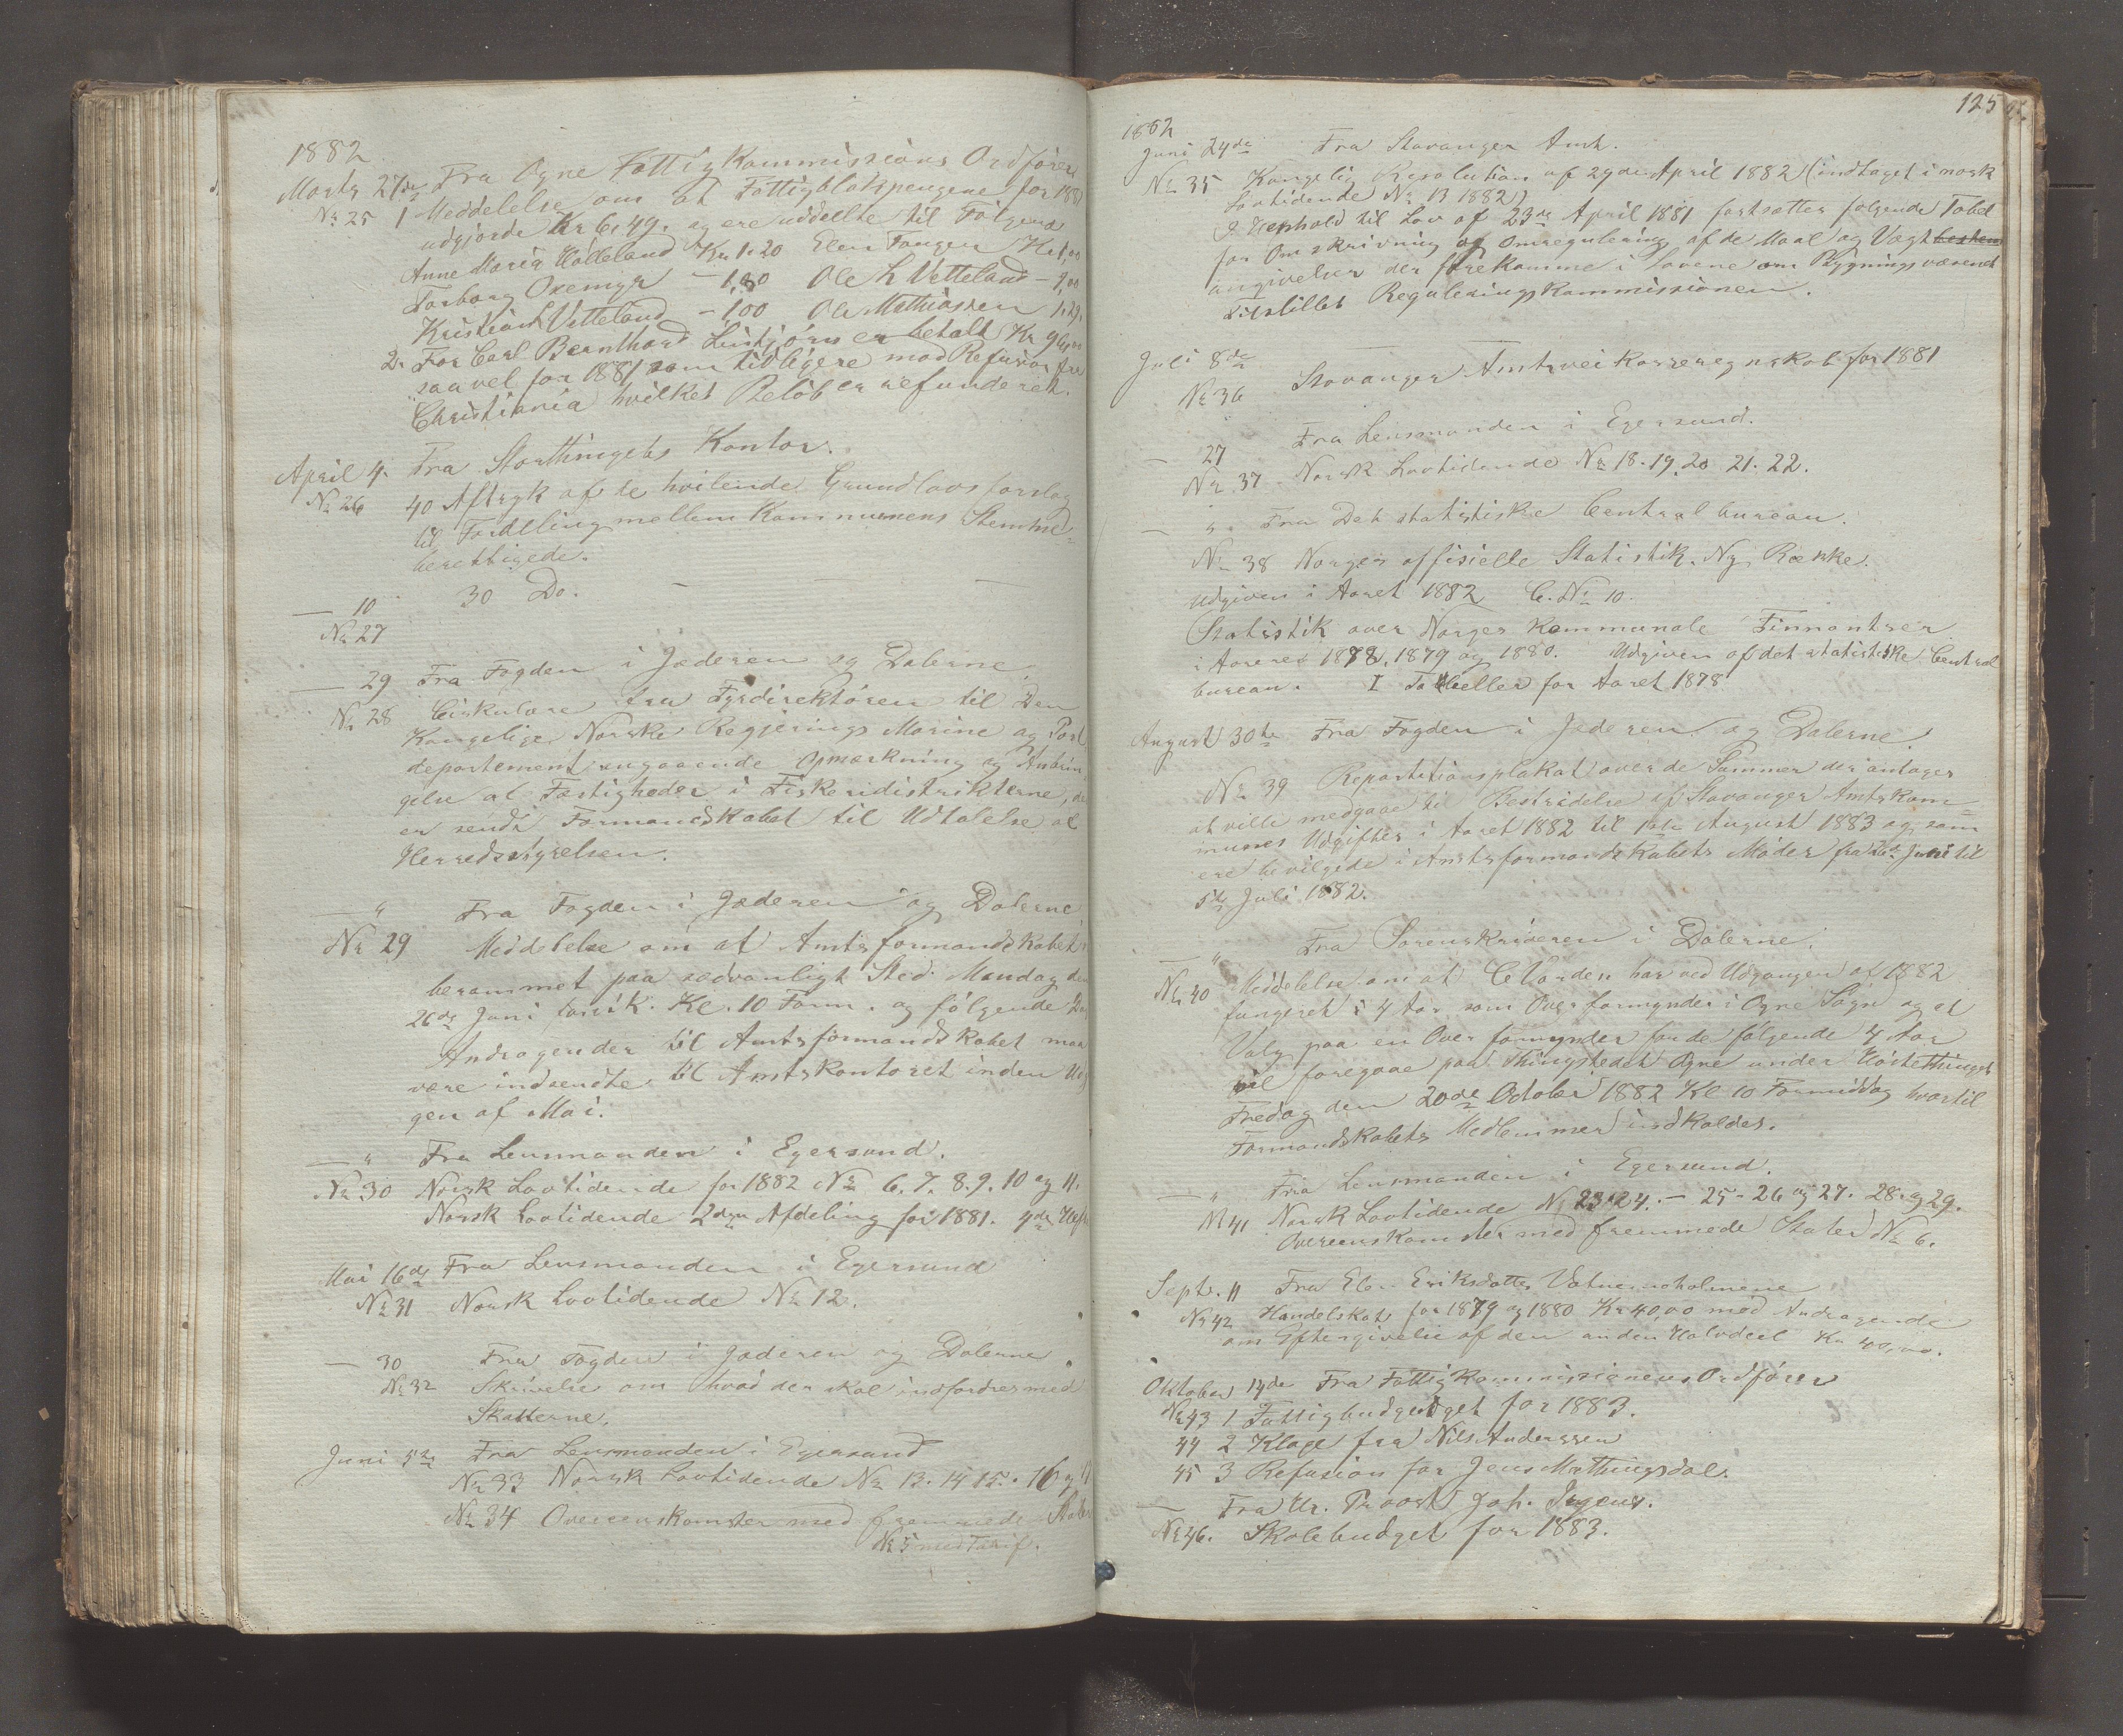 1882
Marts 27de Fra Ogne Fattigkommissions Ordfører
No 25 1 Meddelelse om at Fattigblokspengene for 1881
udgjorde Kr 6,49. og ere uddeelte til Følgende
Anne Maria Hølleland Kr 1.20 Elen Tengen Kr 1,00
Torborg Oxemyr - 1,30 Ole L Vetteland - 1,00
Kristian Vetteland - 1,00 Ole Mathiassen 1.29.
2. For Carl Bernthard er betalt Kr
saavel for 1881 som tidligere mod Refusion fra
Christiania hvilket Beløb er refunderet.
April 4. Fra Storthingets Kontor.
No 26 40 Aftryk af de hvilende Grundlovsforslag
til Fordeling mellem Kommunens Stemme-
berettigede.
— 10 30 Do. — — —
No 27
— 29 Fra Fogden i Jæderen og Dalerne.
No 28 Cirkulære fra Fyrdirektøren til Den
Kongelige Norske Regjerings Marine og Post
departement angaaende Opmærkning og Anbrin
gelse af Fæstigheder i Fiskeridistrikterne, der
er sendt Formandskabet til Udtalelse af
Herredsstyrelsen.
— " Fra Fogden i Jæderen og Dalerne
No 29 Meddelelse om at Amtsformandskabet
berammet paa sædvanligt Sted. Mandag den
26de Juni førstk. Kl. 10 Form. og følgende Dag
Andragender til Amtsformandskabet maa
være indsendte til Amtskontoret inden Udg
gen af Mai.
— " Fra Lensmanden i Egersund.
No 30 Norsk Lovtidende for 1882 No 6. 7. 8. 9. 10 og 11.
Norsk Lovtidende 2den Afdeling for 1881. 4de Hefte
Mai 16de Fra Lensmanden i Egersund
No 31 Norsk Lovtidende No 12.
— 30 Fra Fogden i Jæderen og Dalerne
No 32 Skrivelse om hvad der skal indfordres med
Skatterne.
Juni 5te Fra Lensmanden i Egersund
No 33 Norsk Lovtidende No 13. 14 15. 16 og 17
No 34 Overenskomster med fremmede Stater
No 5 med Tarif.
125
1882
Juni 24de Fra Stavanger Amt.
No 35 Kongelig Resolution af 29den April 1882 (indtaget i norsk
Lovtidende No 13 1882)
I Henhold til Lov af 23de April 1881 fastsættes følgende Tabel
for Omskrivning og Omregulering af de Maal og Vægt bestem
angivelser der forekomme i Lovene om Bygningsvæsenet
Tilstillet Reguleringskommissionen.
Juli 8de
No 36 Stavanger Amtsveikasseregnskab for 1881
— 27 Fra Lensmanden i Egersund.
No 37 Norsk Lovtidende No 18. 19. 20 21. 22.
— " Fra Det statistiske Centralbureau.
No 38 Norges offisielle Statistik. Ny Række.
Udgiven i Aaret 1882 C. No 10.
Statistik over Norges Kommunale Finnantser
i Aarene 1878, 1879 og 1880. Udgiven af det statistiske Central
bureau. I Tabeller for Aaret 1878
August 30te Fra Fogden i Jæderen og Dalerne.
No 39 Repartitionsplakat over de Summer der antages
at ville medgaae til Bestridelse af Stavanger Amtskom=
munes Udgifter i Aaret 1882 til 1ste August 1883 og som
ere bevilgede i Amtsformandskabets Møder fra 26de Juni til
5te Juli 1882.
— " Fra Sorenskriveren i Dalerne.
No 40 Meddelelse om at C Varden har ved Udgangen af 1882
fungeret i 4 Aar som Overformynder i Ogne Sogn og at
Valg paa en Overformynder for de følgende 4 Aar
vil foregaae paa Thingstedet Ogne under Høstethinget
Fredag den 20de October 1882 Kl 10 Formiddag hvortil
Formandskabets Medlemmer indkaldes.
— " Fra Lensmanden i Egersund.
No 41 Norsk Lovtidende No 23 24. - 25 - 26 og 27. 28 og 29.
Overenskomster med fremmede Stater No 6.
Sept. 11 Fra Elen Eriksdatter Vatnemoholmene
No 42 Handelskat for 1879 og 1880 Kr 40,00 med Andragende
om Eftergivelse af den anden Halvdeel Kr 40,00.
Oktober 14de Fra Fattigkommissionens Ordfører
No 43 1 Fattigbudgudget for 1883.
44 2 Klage fra Nils Anderssen
45 3 Refusion for Jens Mathingsdal.
— Fra Hr. Provst Joh.
No 46. Skolebudget for 1883.